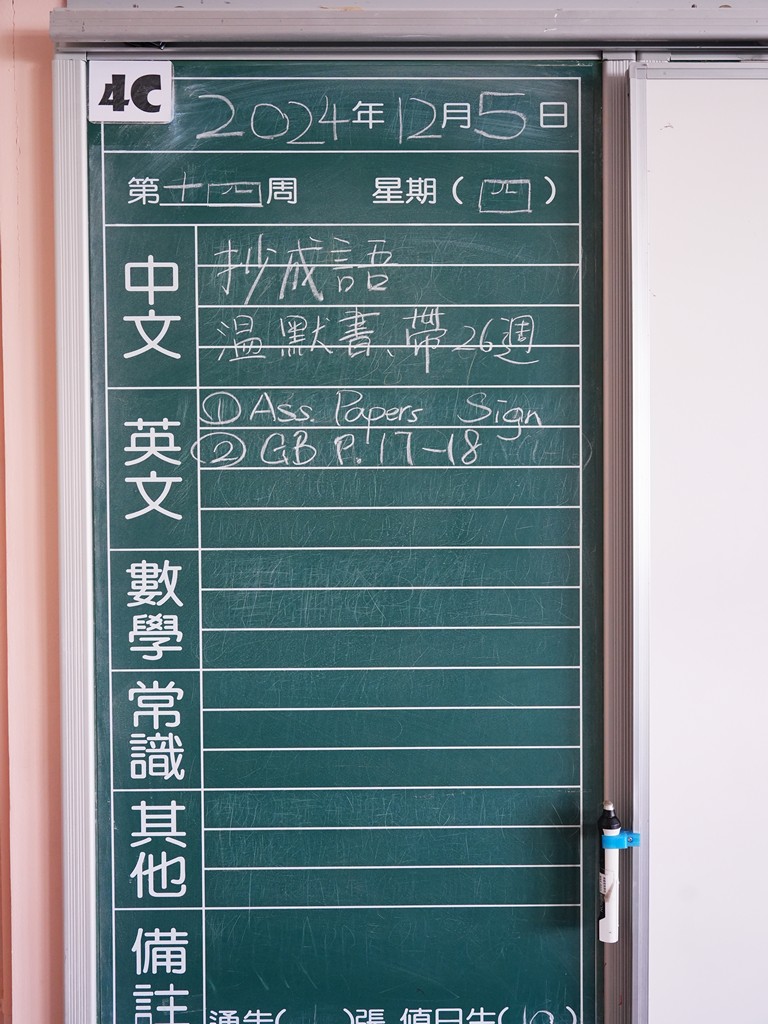 4C
2024年12月5日
第十四周 星期(四)
中文
抄成語
溫默書、帶26週
英文
① Ass. Papers Sign
② GB P. 17-18
數學
常識
其他
備註
通告( )張 值日生(